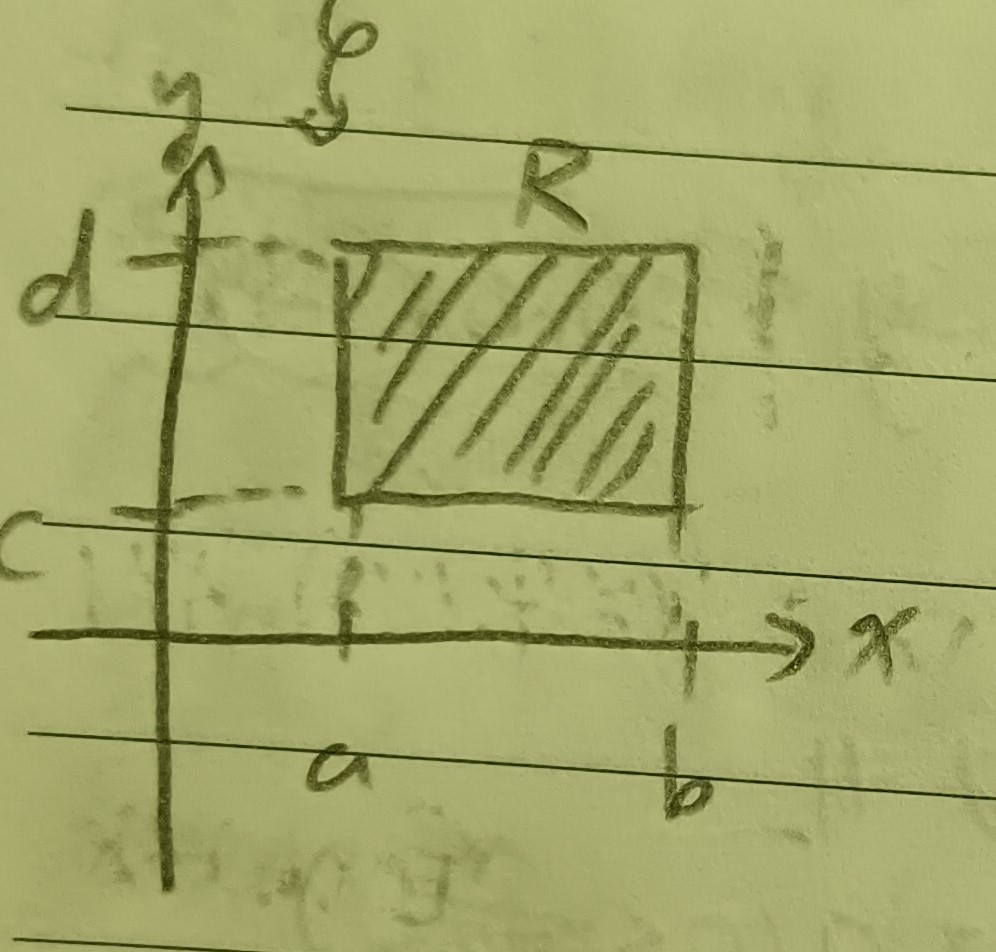 y
R
d
c
x
a b